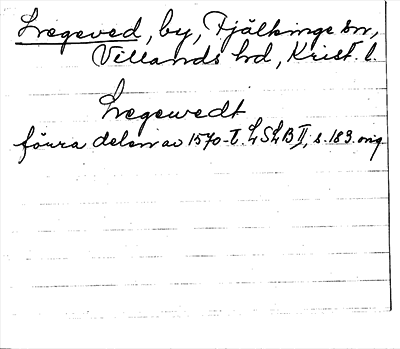 Lægeved, by, Fjälkinge sn,
Villands hd, Krist. l.
Lægewedt
förra delen av 1570-t. LSLB II, s. 183. orig